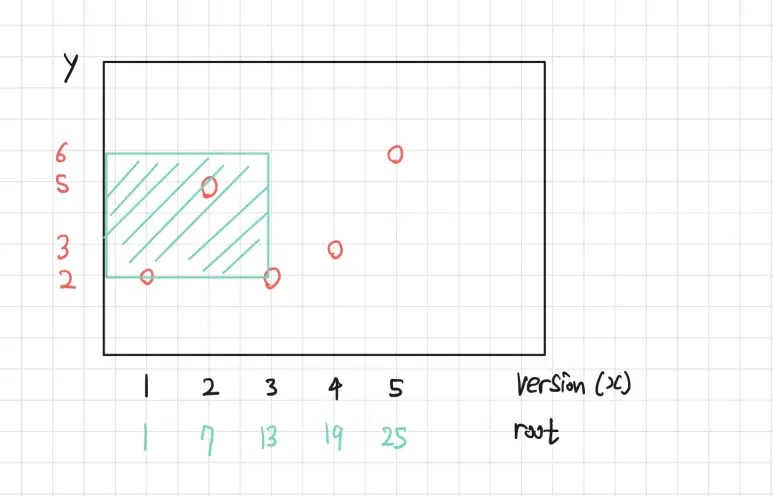 y
6
5
3
2
1 2 3 4 5 version (x)
1 7 13 19 25 root